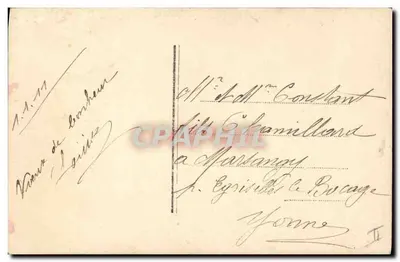 1.1.11
Vœux de bonheur
Louise
Mr et Mme Constant
fils Chamillard
a Marsangy
p. Egriselles le Bocage
Yonne
CPAPHIL
II